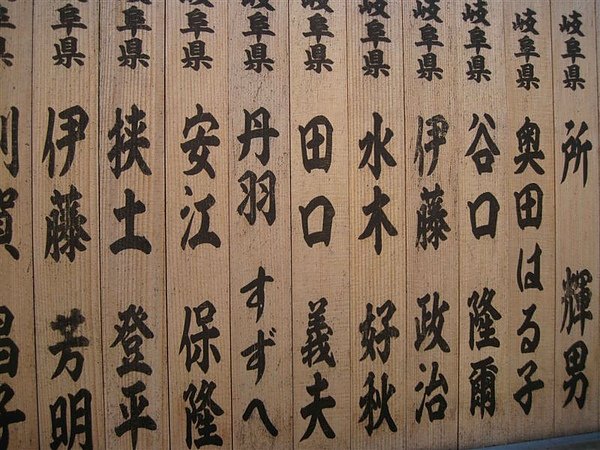 岐阜県 所 輝男
岐阜県 奥田はる子
岐阜県 谷口 隆爾
岐阜県 伊藤 政治
岐阜県 水木 好秋
岐阜県 田口 義夫
岐阜県 丹羽 すずへ
岐阜県 安江 保隆
岐阜県 挟土 登平
岐阜県 伊藤 芳明
県 賀 昌子